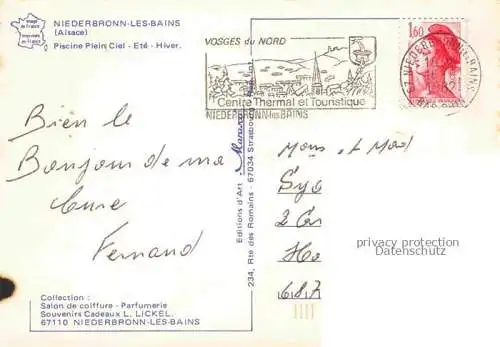 image de France
imprimée en France
NIEDERBRONN-LES-BAINS
(Alsace)
Piscine Plein Ciel - Eté - Hiver.
VOSGES du NORD
Centre Thermal et Touristique
NIEDERBRONN-les-BAINS
1,60
Bien le
Bonjour de ma
Cure
Fernand
Editions d'Art
67034 Strasbourg
234, Rte des Romains -
et
2
68
privacy protection
Datenschutz
Collection :
Salon de coiffure - Parfumerie
Souvenirs Cadeaux L. LICKEL.
67110 NIEDERBRONN-LES-BAINS